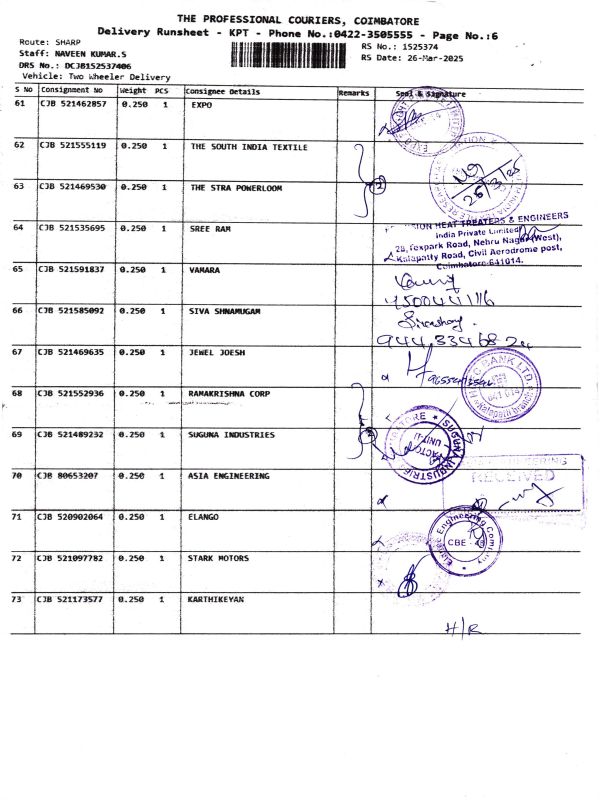 THE PROFESSIONAL COURIERS, COIMBATORE
Delivery Runsheet - KPT - Phone No.:0422-3505555 - Page No.:6
Route: SHARP
Staff: NAVEEN KUMAR.S
DRS No.: DCJB152537406
Vehicle: Two Wheeler Delivery
RS No.: 1525374
RS Date: 26-Mar-2025
S No Consignment No Weight PCS Consignee Details Remarks Seal & Signature
61 CJB 521462857 0.250 1 EXPO
62 CJB 521555119 0.250 1 THE SOUTH INDIA TEXTILE
26/3/25
63 CJB 521469530 0.250 1 THE STRA POWERLOOM
2
64 CJB 521535695 0.250 1 SREE RAM
HEAT TREATERS & ENGINEERS
India Private Limited
28, Texpark Road, Nehru Nagar (West),
Kalapatty Road, Civil Aerodrome post,
Coimbatore-641014.
65 CJB 521591837 0.250 1 VAMARA
66 CJB 521585092 0.250 1 SIVA SHNAMUGAM
67 CJB 521469635 0.250 1 JEWEL JOESH
BANK LTD.
68 CJB 521552936 0.250 1 RAMAKRISHNA CORP
69 CJB 521489232 0.250 1 SUGUNA INDUSTRIES
SUGUNA INDUSTRIES
UNIT-II
70 CJB 80653207 0.250 1 ASIA ENGINEERING
RECEIVED
71 CJB 520902064 0.250 1 ELANGO
Engineering Company
CBE
72 CJB 521097782 0.250 1 STARK MOTORS
73 CJB 521173577 0.250 1 KARTHIKEYAN
H/R